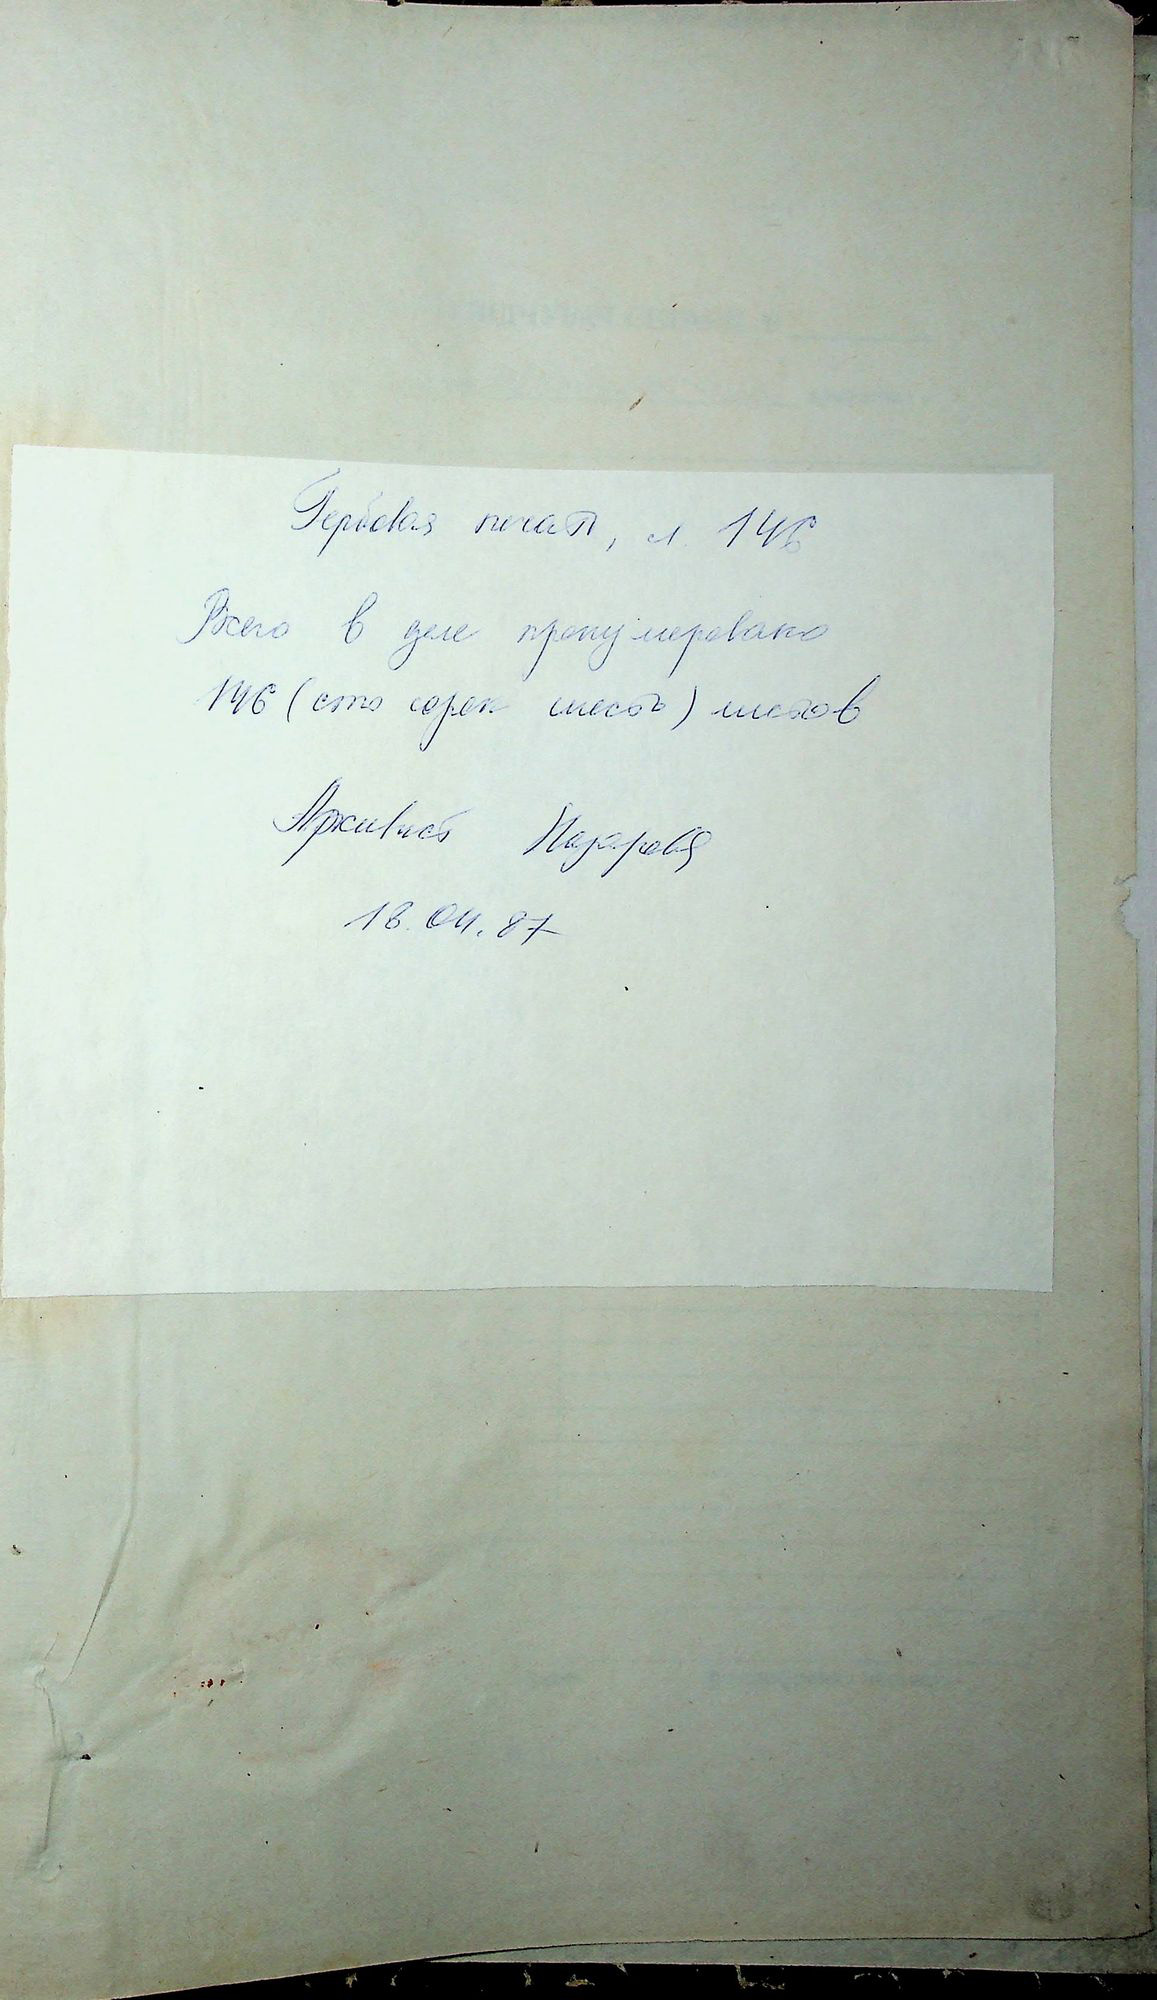 Гербовая печать, л. 146
Всего в деле пронумеровано
146 (сто сорок шесть) листов
Архивист Назарова
18.04.87